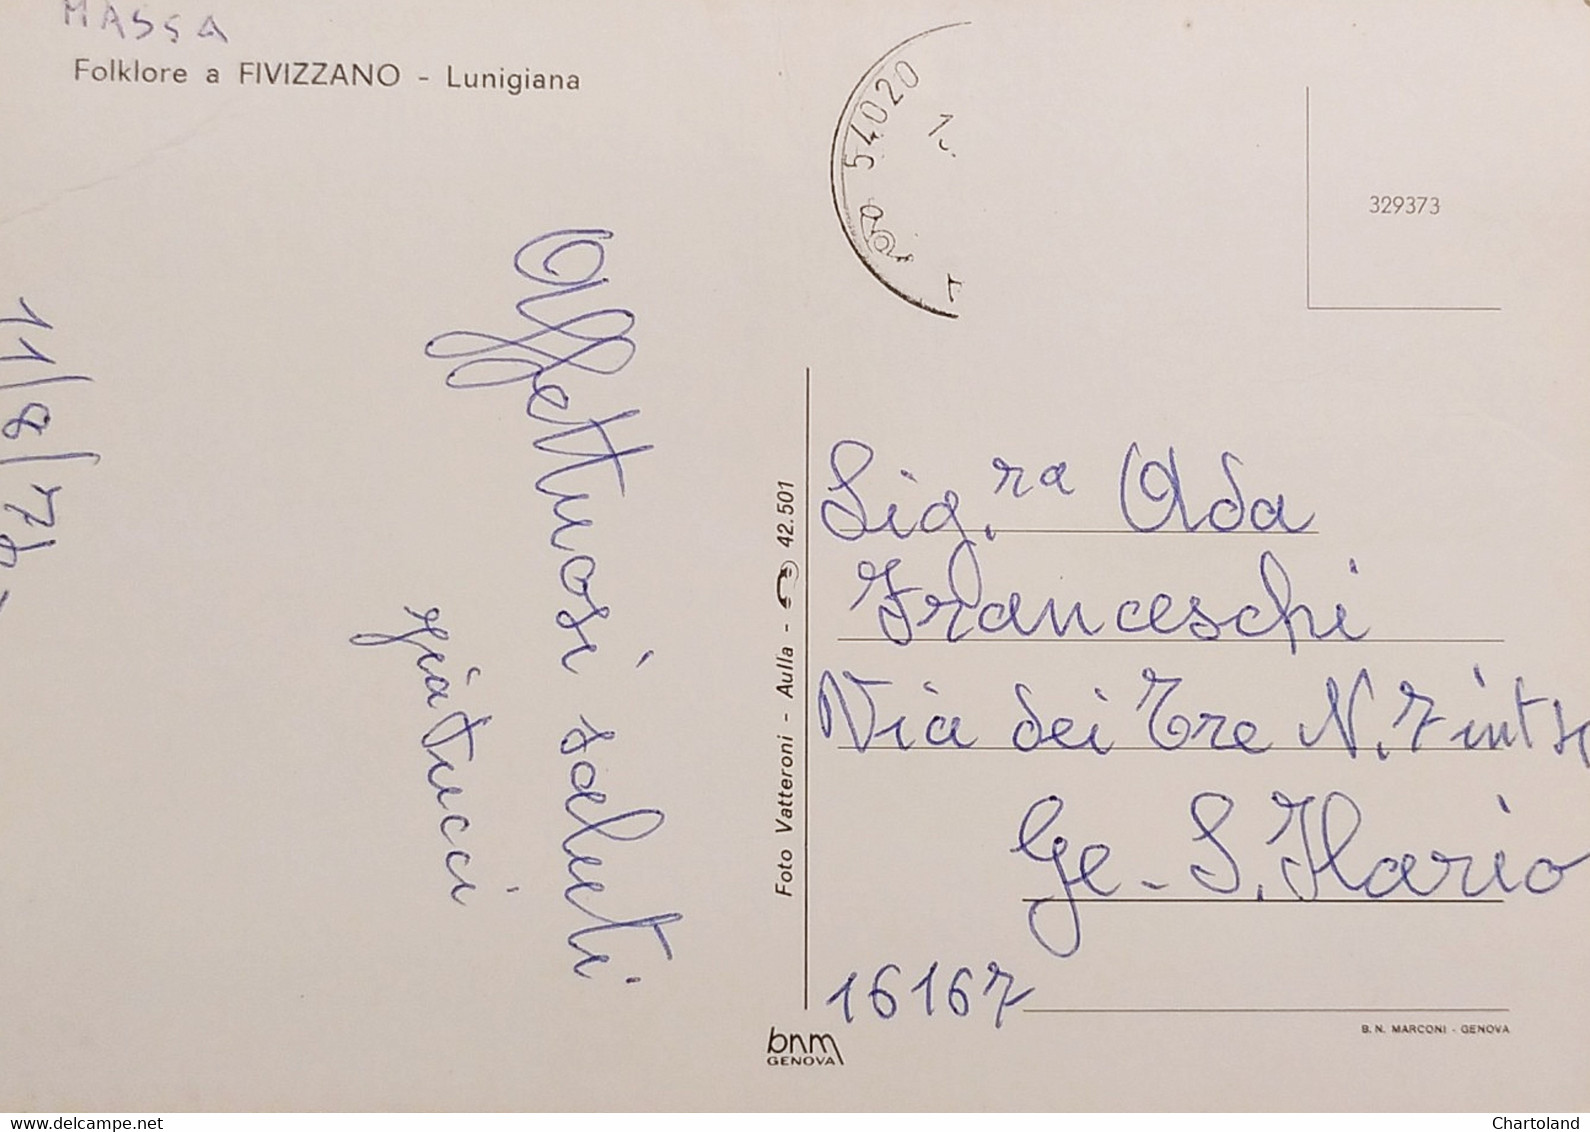 MASSA
Folklore a FIVIZZANO - Lunigiana
54020
329373
Affettuosi saluti
11/8/7
Foto Vatteroni - Aulla - 42.501
Sig.ra Ada
Franceschi
Via dei Tre N.
Ge - S. Ilario
16167
bnm
GENOVA
B. N. MARCONI - GENOVA
www.delcampe.net
Chartoland